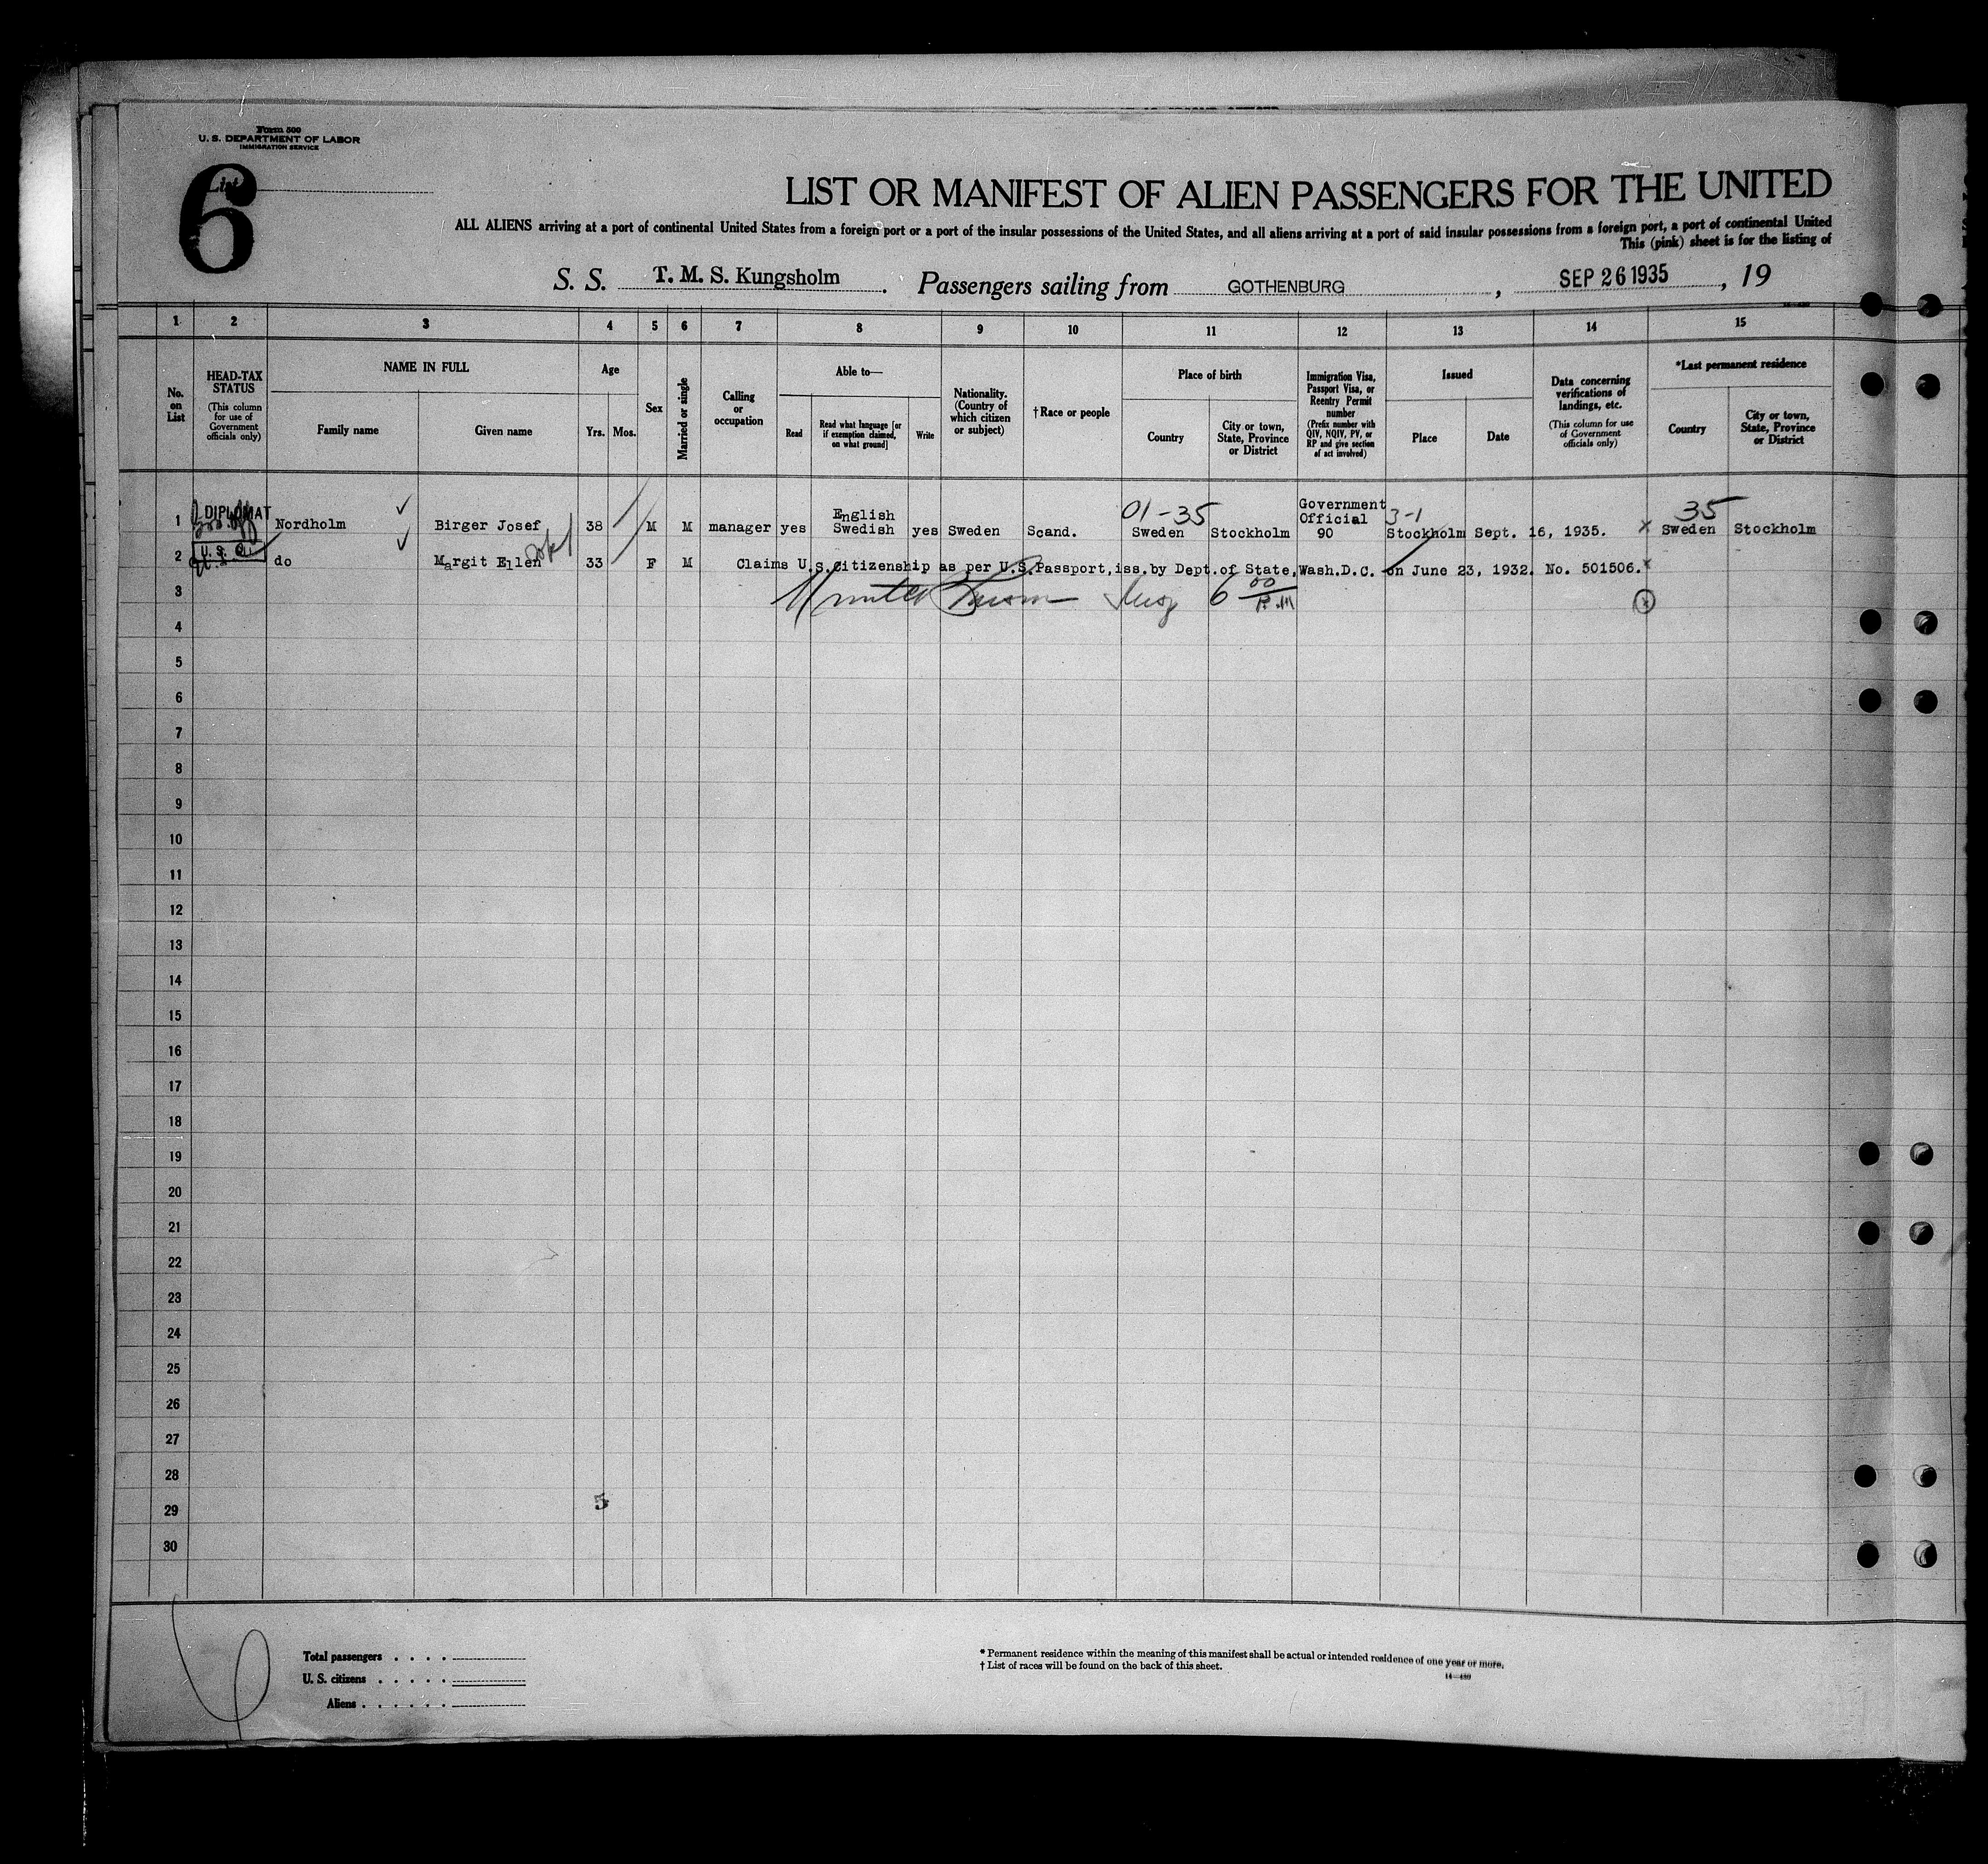 Form 500
U. S. DEPARTMENT OF LABOR
IMMIGRATION SERVICE
List
6
LIST OR MANIFEST OF ALIEN PASSENGERS FOR THE UNITED
ALL ALIENS arriving at a port of continental United States from a foreign port or a port of the insular possessions of the United States, and all aliens arriving at a port of said insular possessions from a foreign port, a port of continental United
This (pink) sheet is for the listing of
S. S. T. M. S. Kungsholm. Passengers sailing from GOTHENBURG, SEP 26 1935, 19
1 2 3 4 5 6 7 8 9 10 11 12 13 14 15
No. on List
HEAD-TAX STATUS
(This column for use of Government officials only)
NAME IN FULL
Family name
Given name
Age
Yrs.
Mos.
Sex
Married or single
Calling or occupation
Able to—
Read
Read what language [or if exemption claimed, on what ground]
Write
Nationality. (Country of which citizen or subject)
†Race or people
Place of birth
Country
City or town, State, Province or District
Immigration Visa, Passport Visa, or Reentry Permit number
(Prefix number with QIV, NQIV, PV, or RP and give section of act involved)
Issued
Place
Date
Data concerning verifications of landings, etc.
(This column for use of Government officials only)
*Last permanent residence
Country
City or town, State, Province or District
1 DIPLOMAT Nordholm Birger Josef 38 M M manager yes English Swedish yes Sweden Scand. 01-35 Sweden Stockholm Government Official 90 3-1 Stockholm Sept. 16, 1935. x 35 Sweden Stockholm
2 U. S. C. do Margit Ellen 33 F M Claims U.S.Citizenship as per U.S.Passport,iss.by Dept.of State,Wash.D.C. on June 23, 1932. No. 501506. x
3 6 00 P.M x
4
5
6
7
8
9
10
11
12
13
14
15
16
17
18
19
20
21
22
23
24
25
26
27
28
29 5
30
Total passengers
U. S. citizens
Aliens
* Permanent residence within the meaning of this manifest shall be actual or intended residence of one year or more.
† List of races will be found on the back of this sheet.
14—480